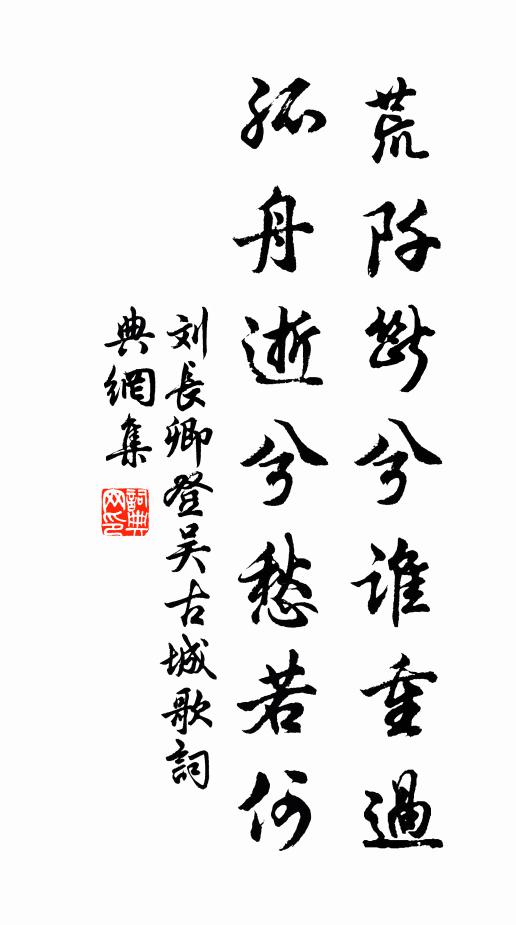 荒阡斷兮誰重過
孤舟逝兮愁若何
刘長卿登吴古城歌詞
典網集
詞典網印